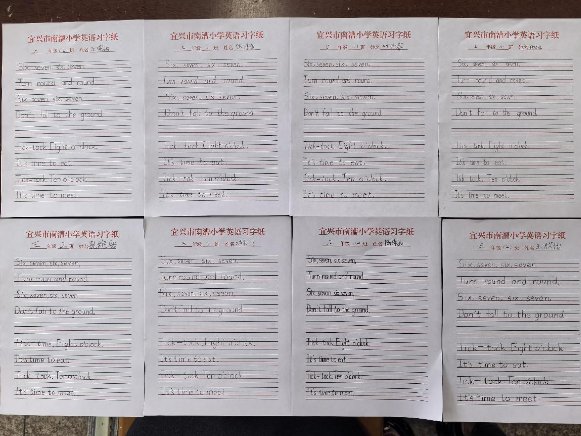 宜兴市南漕小学英语习字纸
Six, seven, six, seven.
Turn round and round.
Six, seven, six, seven.
Don't fall to the ground.
Tick-tock, Eight o'clock.
It's time to eat.
Tick-tock, Ten o'clock.
It's time to meet.
宜兴市南漕小学英语习字纸
Six, seven, six, seven.
Turn round and round.
Six, seven, six, seven.
Don't fall to the ground.
Tick-tock, Eight o'clock.
It's time to eat.
Tick-tock, Ten o'clock.
It's time to meet.
宜兴市南漕小学英语习字纸
Six, seven, six, seven.
Turn round and round.
Six, seven, six, seven.
Don't fall to the ground
Tick-tock, Eight o'clock.
It's time to eat.
Tick-tock, Ten o'clock.
It's time to meet.
宜兴市南漕小学英语习字纸
Six, seven, six, seven.
Turn round and round.
Six, seven, six, seven.
Don't fall to the ground.
Tick-tock, Eight o'clock.
It's time to eat.
Tick-tock, Ten o'clock.
It's time to meet.
宜兴市南漕小学英语习字纸
Six, seven, six, seven.
Turn round and round.
Six, seven, six, seven.
Don't fall to the ground.
Tick-tock, Eight o'clock.
It's time to eat.
Tick-tock, Ten o'clock.
It's time to meet.
宜兴市南漕小学英语习字纸
Six, seven, six, seven.
Turn round and round.
Six, seven, six, seven.
Don't fall to the ground
Tick-tock, Eight o'clock.
It's time to eat.
Tick-tock, Ten o'clock.
It's time to meet
宜兴市南漕小学英语习字纸
Six, seven, six, seven.
Turn round and round.
Six, seven, six, seven.
Don't fall to the ground.
Tick-tock, Eight o'clock
It's time to eat.
Tick-tock, Ten o'clock.
It's time to meet.
宜兴市南漕小学英语习字纸
Six, seven, six, seven.
Turn round and round.
Six, seven, six, seven.
Don't fall to the ground
Tick-tock, Eight o'clock
It's time to eat
Tick-tock, Ten o'clock
It's time to meet